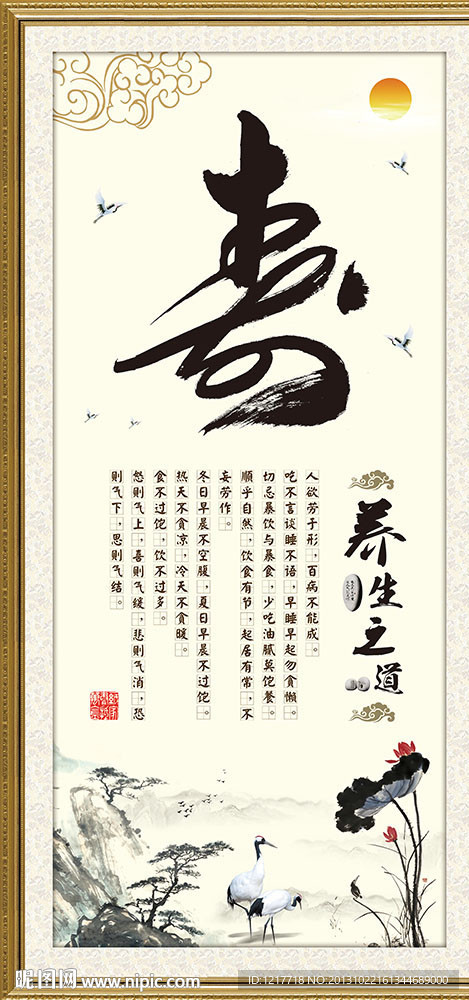 寿
养生之道
人欲劳于形，百病不能成。
吃不言谈睡不语，早睡早起勿贪懒。
切忌暴饮与暴食，少吃油腻莫饱餐。
顺乎自然，饮食有节，起居有常，不
妄劳作。
冬日早晨不空腹，夏日早晨不过饱。
热天不贪凉，冷天不贪暖。
食不过饱，饮不过多。
怒则气上，喜则气缓，悲则气消，恐
则气下，思则气结。
昵图网 www.nipic.com
ID:1217718 NO:20131022161344689000